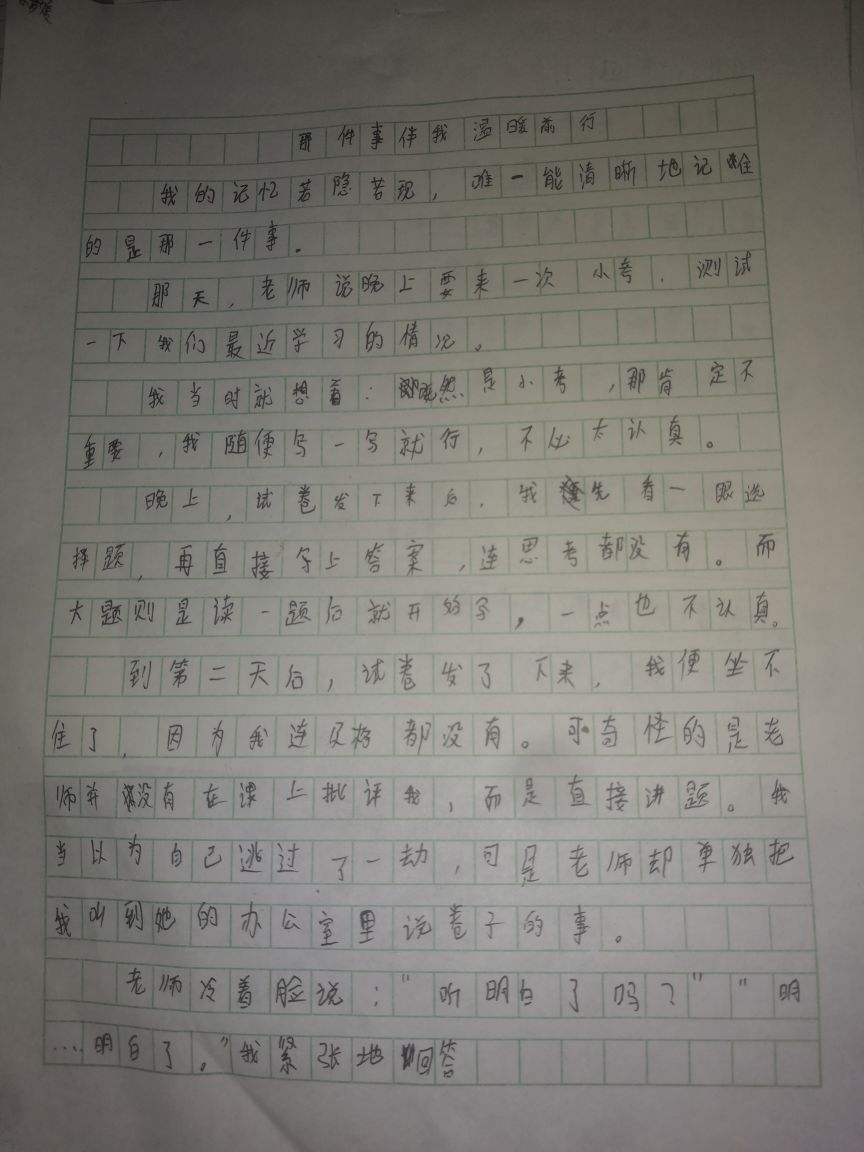 那件事伴我温暖前行
我的记忆若隐若现，唯一能清晰地记住
的是那一件事。
那天，老师说晚上要来一次小考，测试
一下我们最近学习的情况。
我当时就想着：既然是小考，那肯定不
重要，我随便写一写就行，不必太认真。
晚上，试卷发下来后，我先看一眼选
择题，再直接写上答案，连思考都没有。而
大题则是读一题后就开始写，一点也不认真。
到第二天后，试卷发了下来，我便坐不
住了，因为我连及格都没有。可奇怪的是老
师并没有在课上批评我，而是直接讲题。我
当以为自己逃过了一劫，可是老师却单独把
我叫到她的办公室里说卷子的事。
老师冷着脸说：“听明白了吗？”“明
…明白了。”我紧张地回答